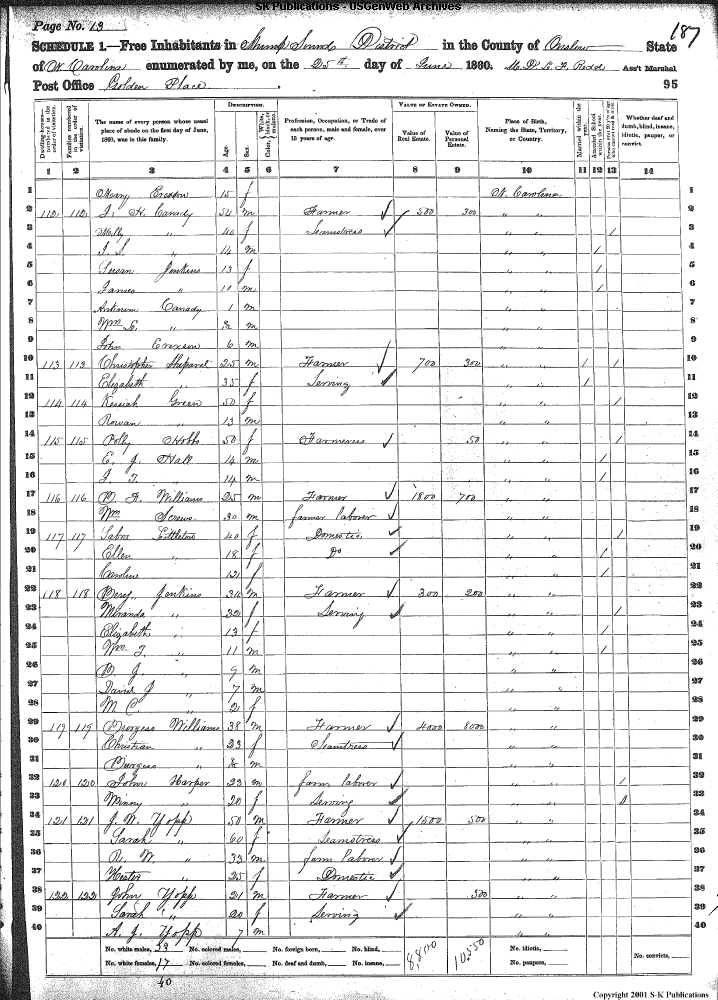 SK Publications - USGenWeb Archives
Page No. 13
187
SCHEDULE 1.—Free Inhabitants in Stump Sound District in the County of Onslow State
of N Carolina enumerated by me, on the 25th day of June 1860. Ass't Marshal
Post Office Golden Place
95
Dwelling-houses—numbered in the order of visitation.
Families numbered in the order of visitation.
The name of every person whose usual place of abode on the first day of June, 1860, was in this family.
DESCRIPTION.
Age.
Sex.
Color, White, black, or mulatto.
Profession, Occupation, or Trade of each person, male and female, over 15 years of age.
VALUE OF ESTATE OWNED.
Value of Real Estate.
Value of Personal Estate.
Place of Birth, Naming the State, Territory, or Country.
Married within the year.
Attended School within the year.
Persons over 20 y'rs of age who cannot read & write.
Whether deaf and dumb, blind, insane, idiotic, pauper, or convict.
1 2 3 4 5 6 7 8 9 10 11 12 13 14
1 Mary 15 f N. Carolina 1
2 112 112 J. H. Canady 54 m Farmer ✓ 500 300 " " 2
3 Milly " 40 f Seamstress ✓ / 3
4 14 m " " / 4
5 Susan Jenkins 13 f " " / 5
6 James " 11 m " " / 6
7 Canady 1 m " " 7
8 Wm " m " " 8
9 John 6 m " 9
10 113 113 Christopher Sheparet 25 m Farmer ✓ 700 300 " " / / 10
11 Elizabeth " 35 f Serving ✓ " " / 11
12 114 114 Kesiah Green 50 f " " / 12
13 Rowan " 13 m " " 13
14 115 115 Polly Hobbs 50 f Farmeress ✓ 50 " " / 14
15 E. J. Hall 14 m " " / 15
16 J. T. " 14 m " " / 16
17 116 116 Williams 25 m Farmer ✓ 1800 700 " " 17
18 Wm 30 m farmer laborer ✓ " " 18
19 117 117 Sabra Littleton 40 f Domestic ✓ " " / 19
20 Ellen " 18 f Do ✓ " " / 20
21 Caroline 12 f " " / 21
22 118 118 Jenkins 34 m Farmer ✓ 300 200 " " 22
23 Miranda " 32 f Serving ✓ / 23
24 Elizabeth " 13 f " " / 24
25 Wm T. " 11 m " " / 25
26 J " 9 m " " 26
27 David J " 7 m " " 27
28 M C. " 2 f " " 28
29 119 119 Burgess Williams 38 m Farmer ✓ 4000 8000 " " 29
30 Christian " 23 f Seamstress ✓ " " 30
31 Burgess " m " " 31
32 120 120 John Harper 23 m farm laborer ✓ " " / 32
33 Winny " 20 f Serving ✓ " " 33
34 121 121 J. W. Yopp 50 m Farmer ✓ 1500 500 " " 34
35 Sarah " 60 f Seamstress ✓ " " 35
36 W. " 33 m farm laborer ✓ " " 36
37 Hester " 25 f Domestic ✓ " " 37
38 122 122 John Yopp 21 m Farmer ✓ 500 " " 38
39 Sarah " 20 f Serving ✓ " " 39
40 A. J. Yopp 7 m " " 40
No. white males, 23 No. colored males, No. foreign born, No. blind, 8,800 10,550 No. idiotic,
No. white females, 17 No. colored females, No. deaf and dumb, No. insane, No. paupers, No. convicts,
40
Copyright 2001 S-K Publications